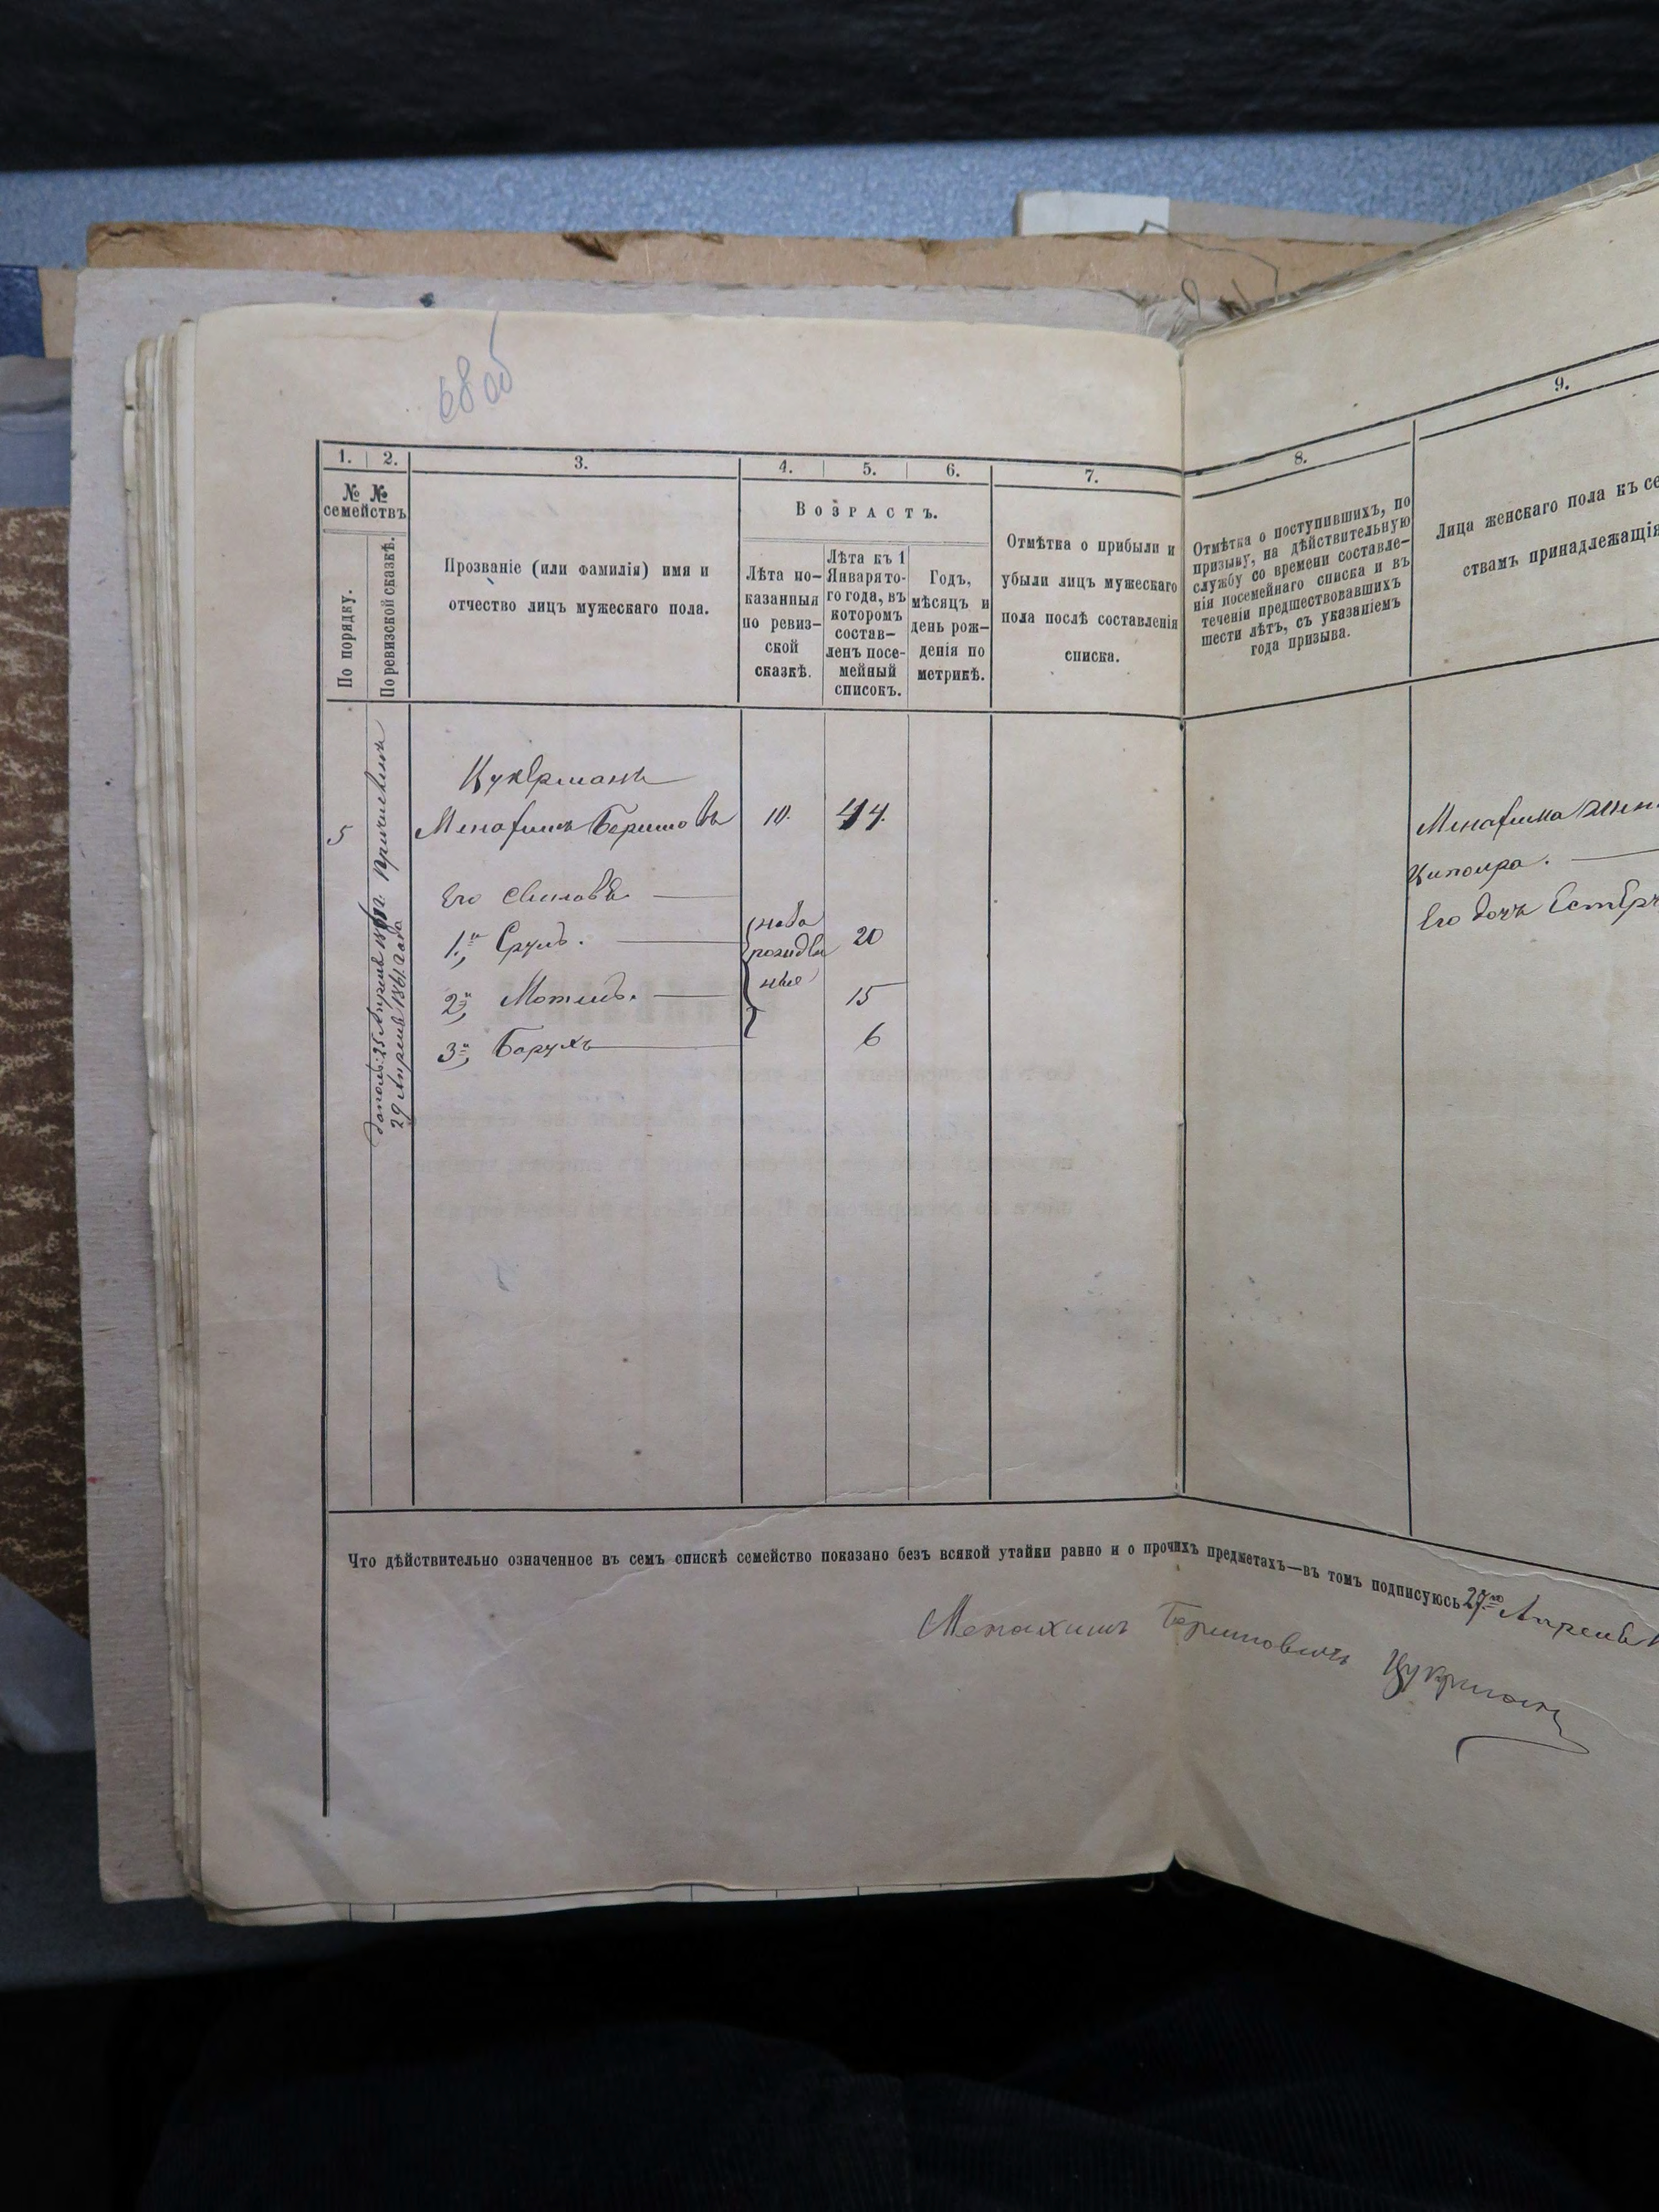 68 об
1. 2. 3. 4. 5. 6. 7. 8. 9.
№ №
семействъ
По порядку.
По ревизской сказкѣ.
Прозваніе (или фамилія) имя и
отчество лицъ мужескаго пола.
Возрастъ.
Лѣта по-
казанныя
по ревиз-
ской
сказкѣ.
Лѣта къ 1
Января то-
го года, въ
которомъ
состав-
ленъ посе-
мейный
списокъ.
Годъ,
мѣсяцъ и
день рож-
денія по
метрикѣ.
Отмѣтка о прибыли и
убыли лицъ мужескаго
пола послѣ составленія
списка.
Отмѣтка о поступившихъ, по
призыву, на дѣйствительную
службу со времени составле-
нія посемейнаго списка и въ
теченіи предшествовавшихъ
шести лѣтъ, съ указаніемъ
года призыва.
Лица женскаго пола къ се
ствамъ принадлежащія
5
Причисленъ
дополн: 25 Апреля
29 Апреля 1861 года
Цукерманъ
Менахимъ Беришовъ 10. 44.
Его сыновья
1й, Срулъ. 20
ново
рожден
ные
2й, Мотель. 15
3й, Барухъ 6
Менахима жена
Ципойра.
Его дочь Естеръ
Что дѣйствительно означенное въ семъ спискѣ семейство показано безъ всякой утайки равно и о прочихъ предметахъ—въ томъ подписуюсь 29го Апреля
Менахимъ Беришовичъ Цукрманъ